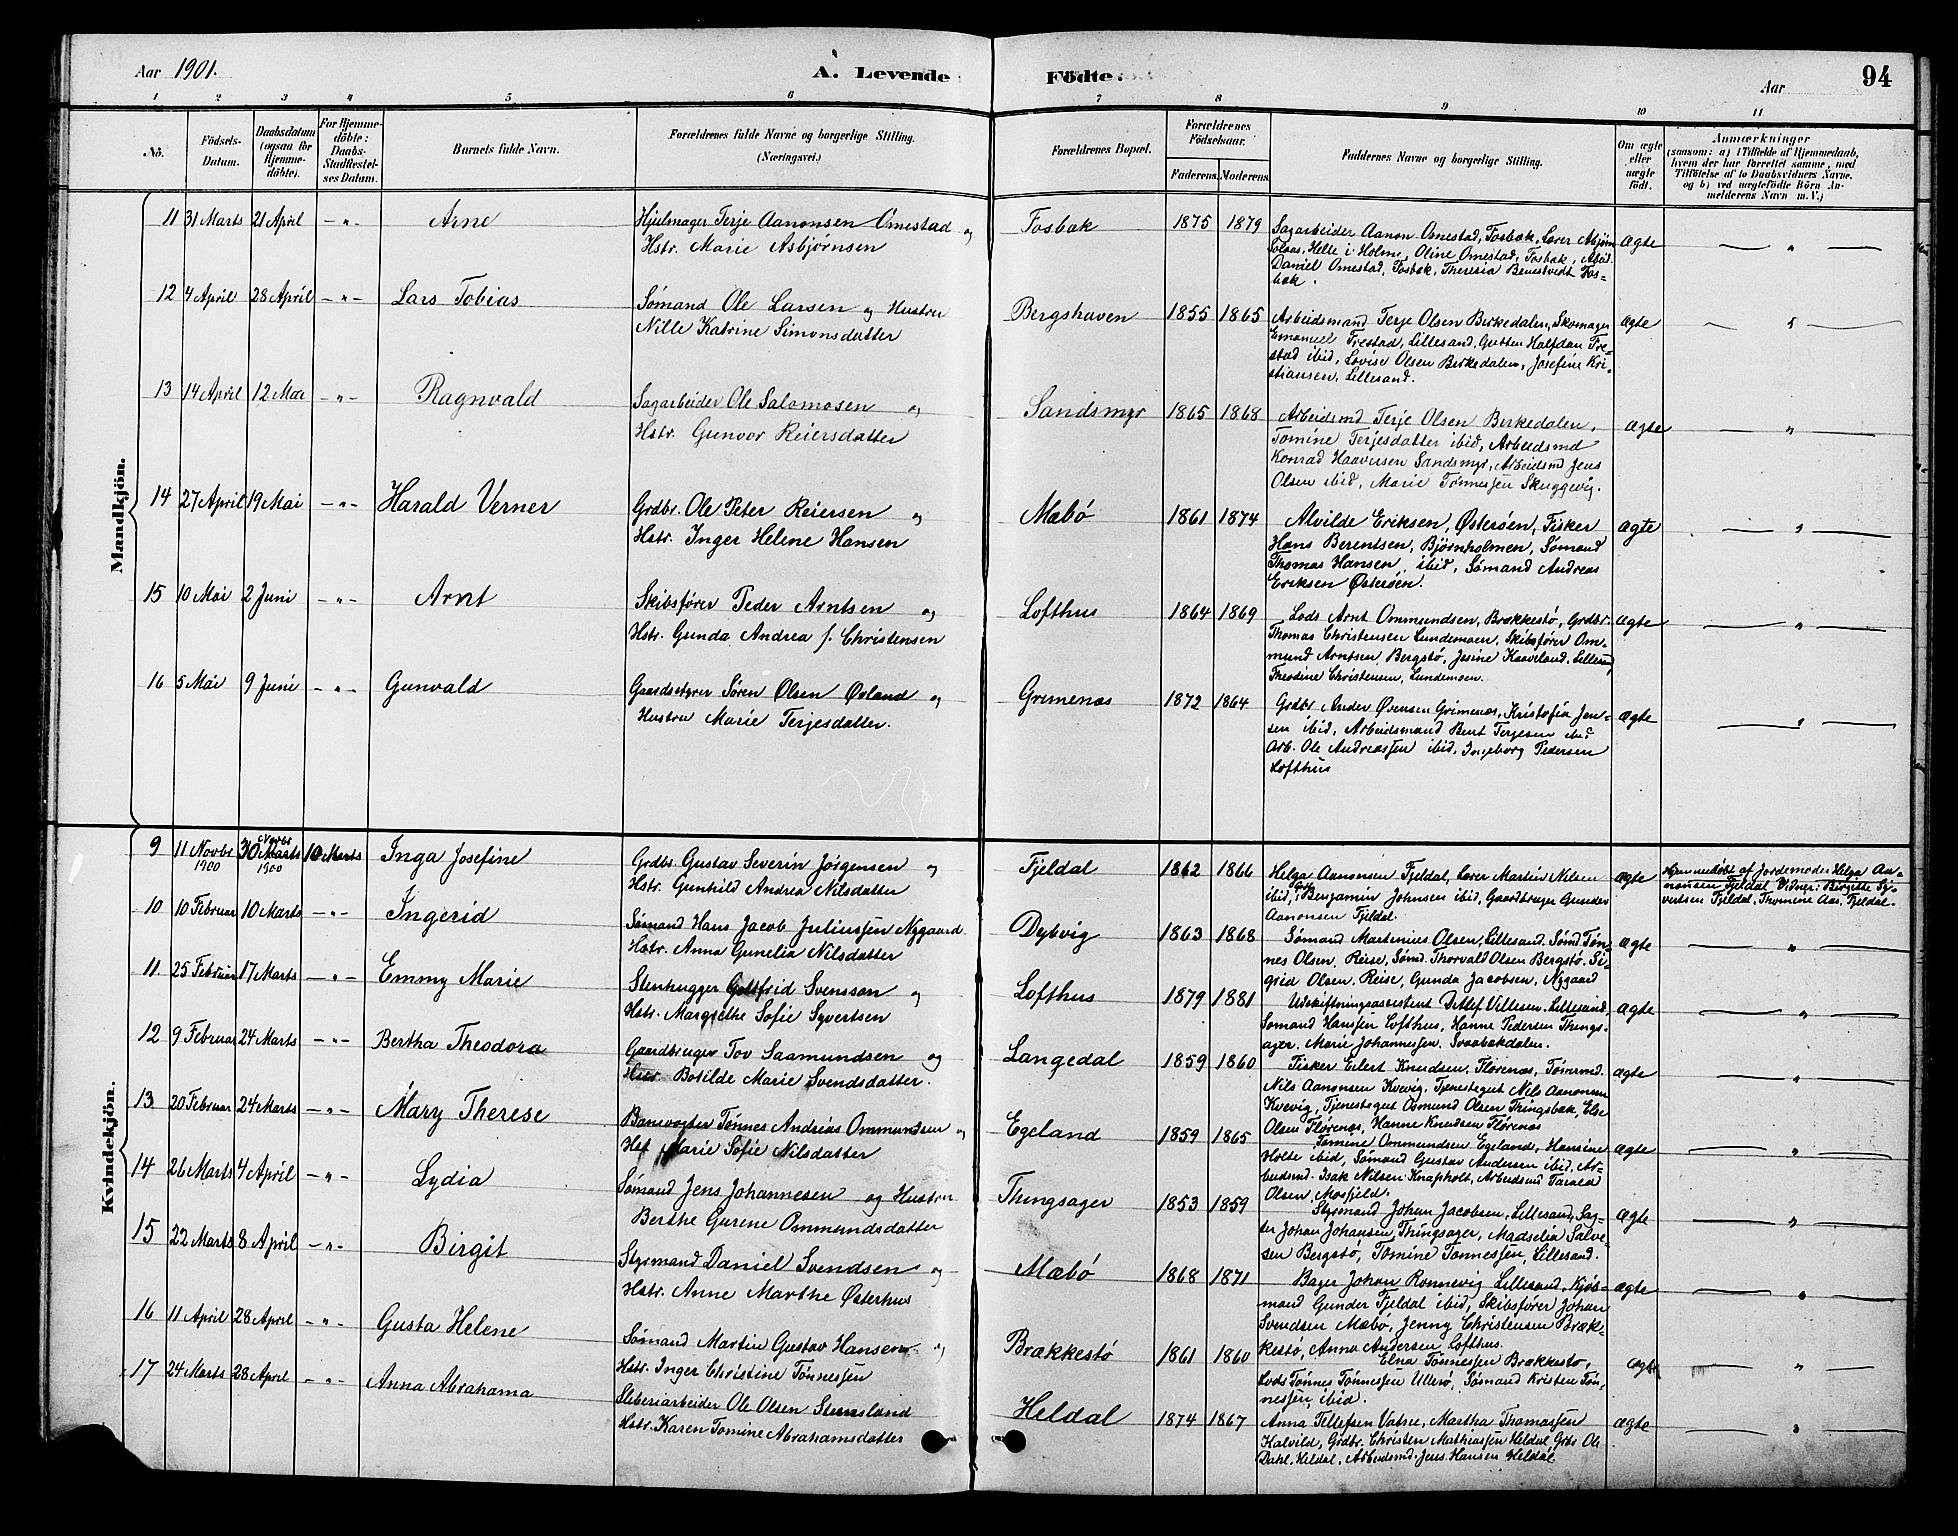 Aar 1901.
A. Levende Födte.
Aar
94
1 2 3 4 5 6 7 8 9 10 11
No.
Födsels-Datum.
Daabsdatum (ogsaa for Hjemme-döbte).
For Hjemme-döbte: Daabs-Stadfestel-ses Datum.
Barnets fulde Navn.
Forældrenes fulde Navne og borgerlige Stilling. (Næringsvei.)
Forældrenes Bopæl.
Forældrenes Födselsaar.
Faderens. Moderens.
Faddernes Navne og borgerlige Stilling.
Om ægte eller uægte födt.
Anmærkninger
(saasom: a) i Tilfælde af Hjemmedaab,
hvem der har forrettet samme, med
Tilföielse af to Daabsvidners Navne.
og b) ved uægtefödte Börn An-
melderens Navn m. V.)
Mandkjön.
11 31 Marts 21 April -"- Arne
Hjulmager Terje Aanonsen Omestad og
Hstr. Marie Asbjørnsen
Fosbæk 1875 1879
Sagarbeider Aanon Omestad, Fosbæk, Lærer Asbjørn
Solaas, Helle i Holme, Oline Omestad, Fosbæk, Arbd.
Daniel Omestad, Fosbæk, Theresia Benestvedt Fos-
bæk.
ægte "
12 4 April 28 April -"- Lars Tobias
Sømand Ole Larsen og Hustru
Nille Katrine Simonsdatter
Bergshaven 1855 1865
Arbeidsmand Terje Olsen Birkedalen, Skomager
Emanuel Trestad, Lillesand, Gutten Halfdan Tre-
stad ibid, Lovise Olsen Birkedalen, Josefine Kri-
stiansen, Lillesand.
ægte "
13 14 April 12 Mai -"- Ragnvald
Sagarbeider Ole Salomosen og
Hstr. Gunvor Reiersdatter
Sandsmyr 1865 1868
Arbeidsmd Terje Olsen Birkedalen,
Tomine Terjesdatter ibid, Arbeidsmd
Konrad Haaversen Sandsmyr, Arbeidsmd Jens
Olsen ibid, Marie Tønnessen Skuggevig.
ægte "
14 27 April 19 Mai -"- Harald Verner
Grdbr. Ole Peter Reiersen og
Hstr. Inger Helene Hansen
Mæbö 1861 1874
Alvilde Eriksen, Østerøen, Fisker
Hans Berentsen, Bjørnholmen, Sømand
Thomas Hansen, ibid, Sømand Andreas
Eriksen Østerøen.
ægte "
15 10 Mai 2 Juni -"- Arnt
Skibsfører Peder Arntsen og
Hstr. Gunda Andrea f. Christensen
Lofthus 1864 1869
Lods Arnt Ommundsen, Brækkestø, Grdbr.
Thomas Christensen Lundemoen, Skibsfører Om-
mund Arntsen Bergstø, Josine Kaaveland, Lillesand
Theodine Christensen, Lundemoen.
ægte "
16 5 Mai 9 Juni -"- Gunvald
Gaardsstyrer Søren Olsen Øvland og
Hustru Marie Terjesdatter.
Grimenæs 1872 1864
Grdbr Ander Ovensen Grimenæs, Kristofia Jen-
sen ibid, Arbeidsmand Bent Terjesen ibid
Arb. Ole Andreassen ibid, Ingeborg Pedersen
Lofthus
ægte "
Kvindekjön.
9 11 Novbr 1900 30 Novbr Marts 1900 10 Marts Inga Josefine
Grdbr. Gustav Severin Jørgensen og
Hstr. Gunhild Andrea Nilsdatter
Fjeldal 1862 1866
Helga Aanonsen Fjeldal, Lærer Martin Nilsen
ibid, Grdb Benjamin Johnsen ibid, Gaardbruger Gunder
Aanonsen Fjeldal.
ægte
Hjemmedøbt af Jordemoder Helga Aa-
nonsen Fjeldal. Vidner: Birgitte Sy-
vertsen Fjeldal, Thomine Aas, Fjeldal.
10 10 Februar 10 Marts -"- Ingerid
Sømand Hans Jacob Juliussen Nygaard
Hstr. Anna Gunelia Nilsdatter
Dybvig 1863 1868
Sømand Martinius Olsen, Lillesand, Sømd Tøn-
nes Olsen, Reise, Sømd. Thorvald Olsen Bergstø. Si-
grid Olsen, Reise, Gunda Jacobsen, Nygaard
ægte "
11 25 Februar 17 Marts -"- Emmy Marie
Stenhugger Gottfrid Svensson og
Hstr. Margrethe Sofie Syvertsen
Lofthus 1879 1881
Udskiftningsassistent Detlef Villesen, Lillesand,
Sømand Hanssen Lofthus, Hanne Pedersen Things-
ager, Marie Johannessen, Svaabækdalen.
ægte "
12 9 Februar 24 Marts -"- Bertha Theodora
Gaardbruger Tov Saamundsen og
Hstr. Botilde Marie Svendsdatter.
Langedal 1859 1860
Fisker Eilert Knudsen, Florenæs, Tømrmd.
Nils Aanonsen Kvevig, Tjenestegut Nils Aanonsen
Kvevig, Tjenestegut Osmund Olsen Thingsbæk, Else
Olsen Flørenæs, Hanne Knudsen Flørenæs
ægte "
13 20 Februar 24 Marts -"- Mary Therese
Banevogter Tønnes Andreas Ommundsen og
Hst Marie Sofie Nilsdatter
Egeland 1859 1865
Tomine Ommundsen Egeland, Hansine
Holte ibid, Sømand Gustav Andersen ibid, Ar-
beidsmd. Isak Nilsen Knapholt, Arbeidsmd Tarald
Olsen, Mosfjeld.
ægte "
14 26 Marts 4 April -"- Lydia
Sømand Jens Johannesen og Hustru
Berthe Gurene Ommundsdatter
Thingsager 1853 1859
Styrmand Johan Jacobsen, Lillesand, Sag-
ter Johan Johansen, Thingsager, Madselia Salve-
sen Bergstø, Tomine Tønnessen, Lillesand.
ægte "
15 22 Marts 8 April -"- Birgit
Styrmand Daniel Svendsen og
Hstr. Anne Marthe Østerhus
Mæbö 1868 1871
Bager Johan Rønnevig Lillesand, Kjøb-
mand Gunder Fjeldal ibid, Skibsfører Johan
Svendsen Mæbø, Jenny Christensen Bræk-
kestø, Anna Andersen Lofthus.
ægte "
16 11 April 28 April -"- Gusta Helene
Sømand Martin Gustav Hansen og
Hstr. Inger Christine Tønnessen
Brækkestö 1861 1860
Elna Tønnessen Brækkestø,
Lods Tønnes Tønnessen Ullerø, Sømand Kristen Tøn-
nessen, ibid.
ægte "
17 24 Marts 28 April -"- Anna Abrahama
Sleberiarbeider Ole Olsen Stensland
Hstr. Karen Tomine Abrahamsdatter
Heldal 1874 1867
Anna Tellefsen Vatne, Martha Thomassen
Kalvild, Grdbr. Christen Mathiassen Heldal, Grbr Ole
Dahl, Heldal, Arbeidsmd. Jens Hansen Heldal.
ægte "